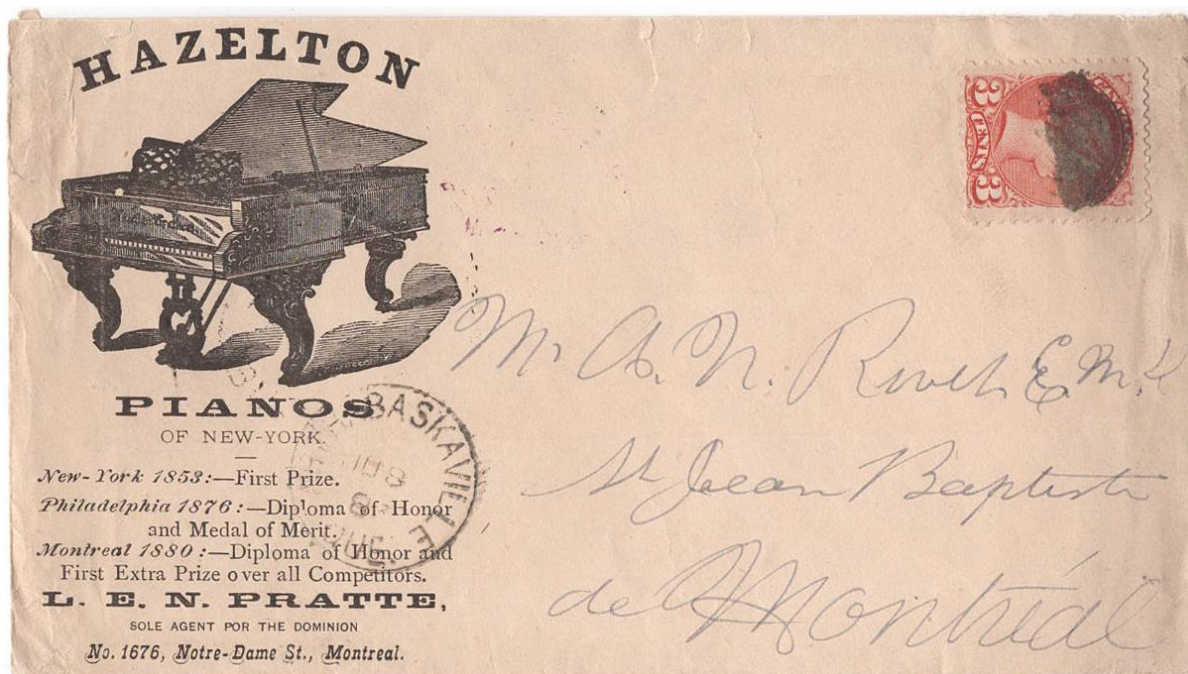 HAZELTON
PIANOS
OF NEW-YORK.
New-York 1853:—First Prize.
Philadelphia 1876:—Diploma of Honor
and Medal of Merit.
Montreal 1880:—Diploma of Honor and
First Extra Prize over all Competitors.
L. E. N. PRATTE,
SOLE AGENT POR THE DOMINION
No. 1676, Notre-Dame St., Montreal.
3 CENTS 3
BASKAVILLE
QUE
M. A. N. E. M.
St Jean Baptiste
de Montréal